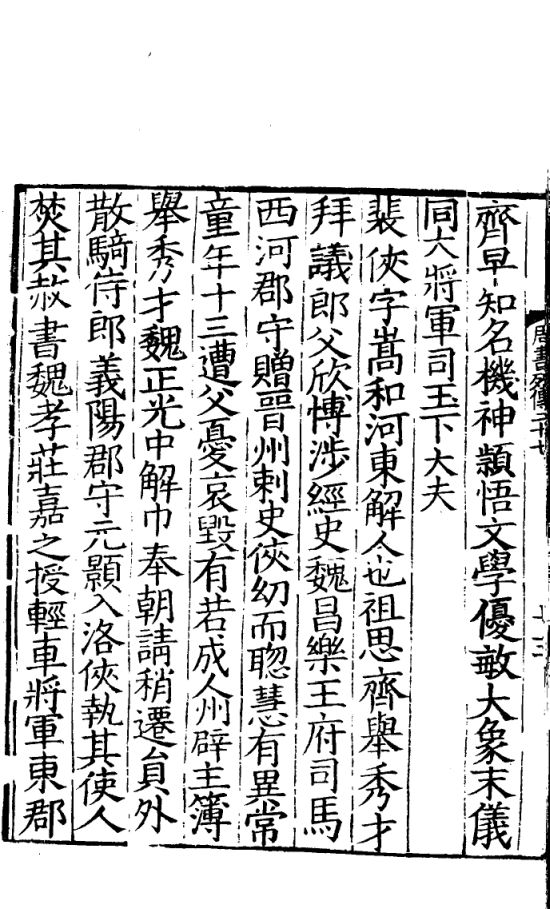 齊早知名機神頴悟文學優敏大象末儀
同大將軍司玉下大夫
裴俠字嵩和河東解人也祖思齊舉秀才
拜議郎父欣博涉經史魏昌樂王府司馬
西河郡守贈晉州刺史俠幼而聦慧有異常
童年十三遭父憂哀毀有若成人州辟主簿
舉秀才魏正光中解巾奉朝請稍遷負外
散騎侍郎義陽郡守元顥入洛俠執其使人
焚其赦書魏孝莊嘉之授輕車將軍東郡